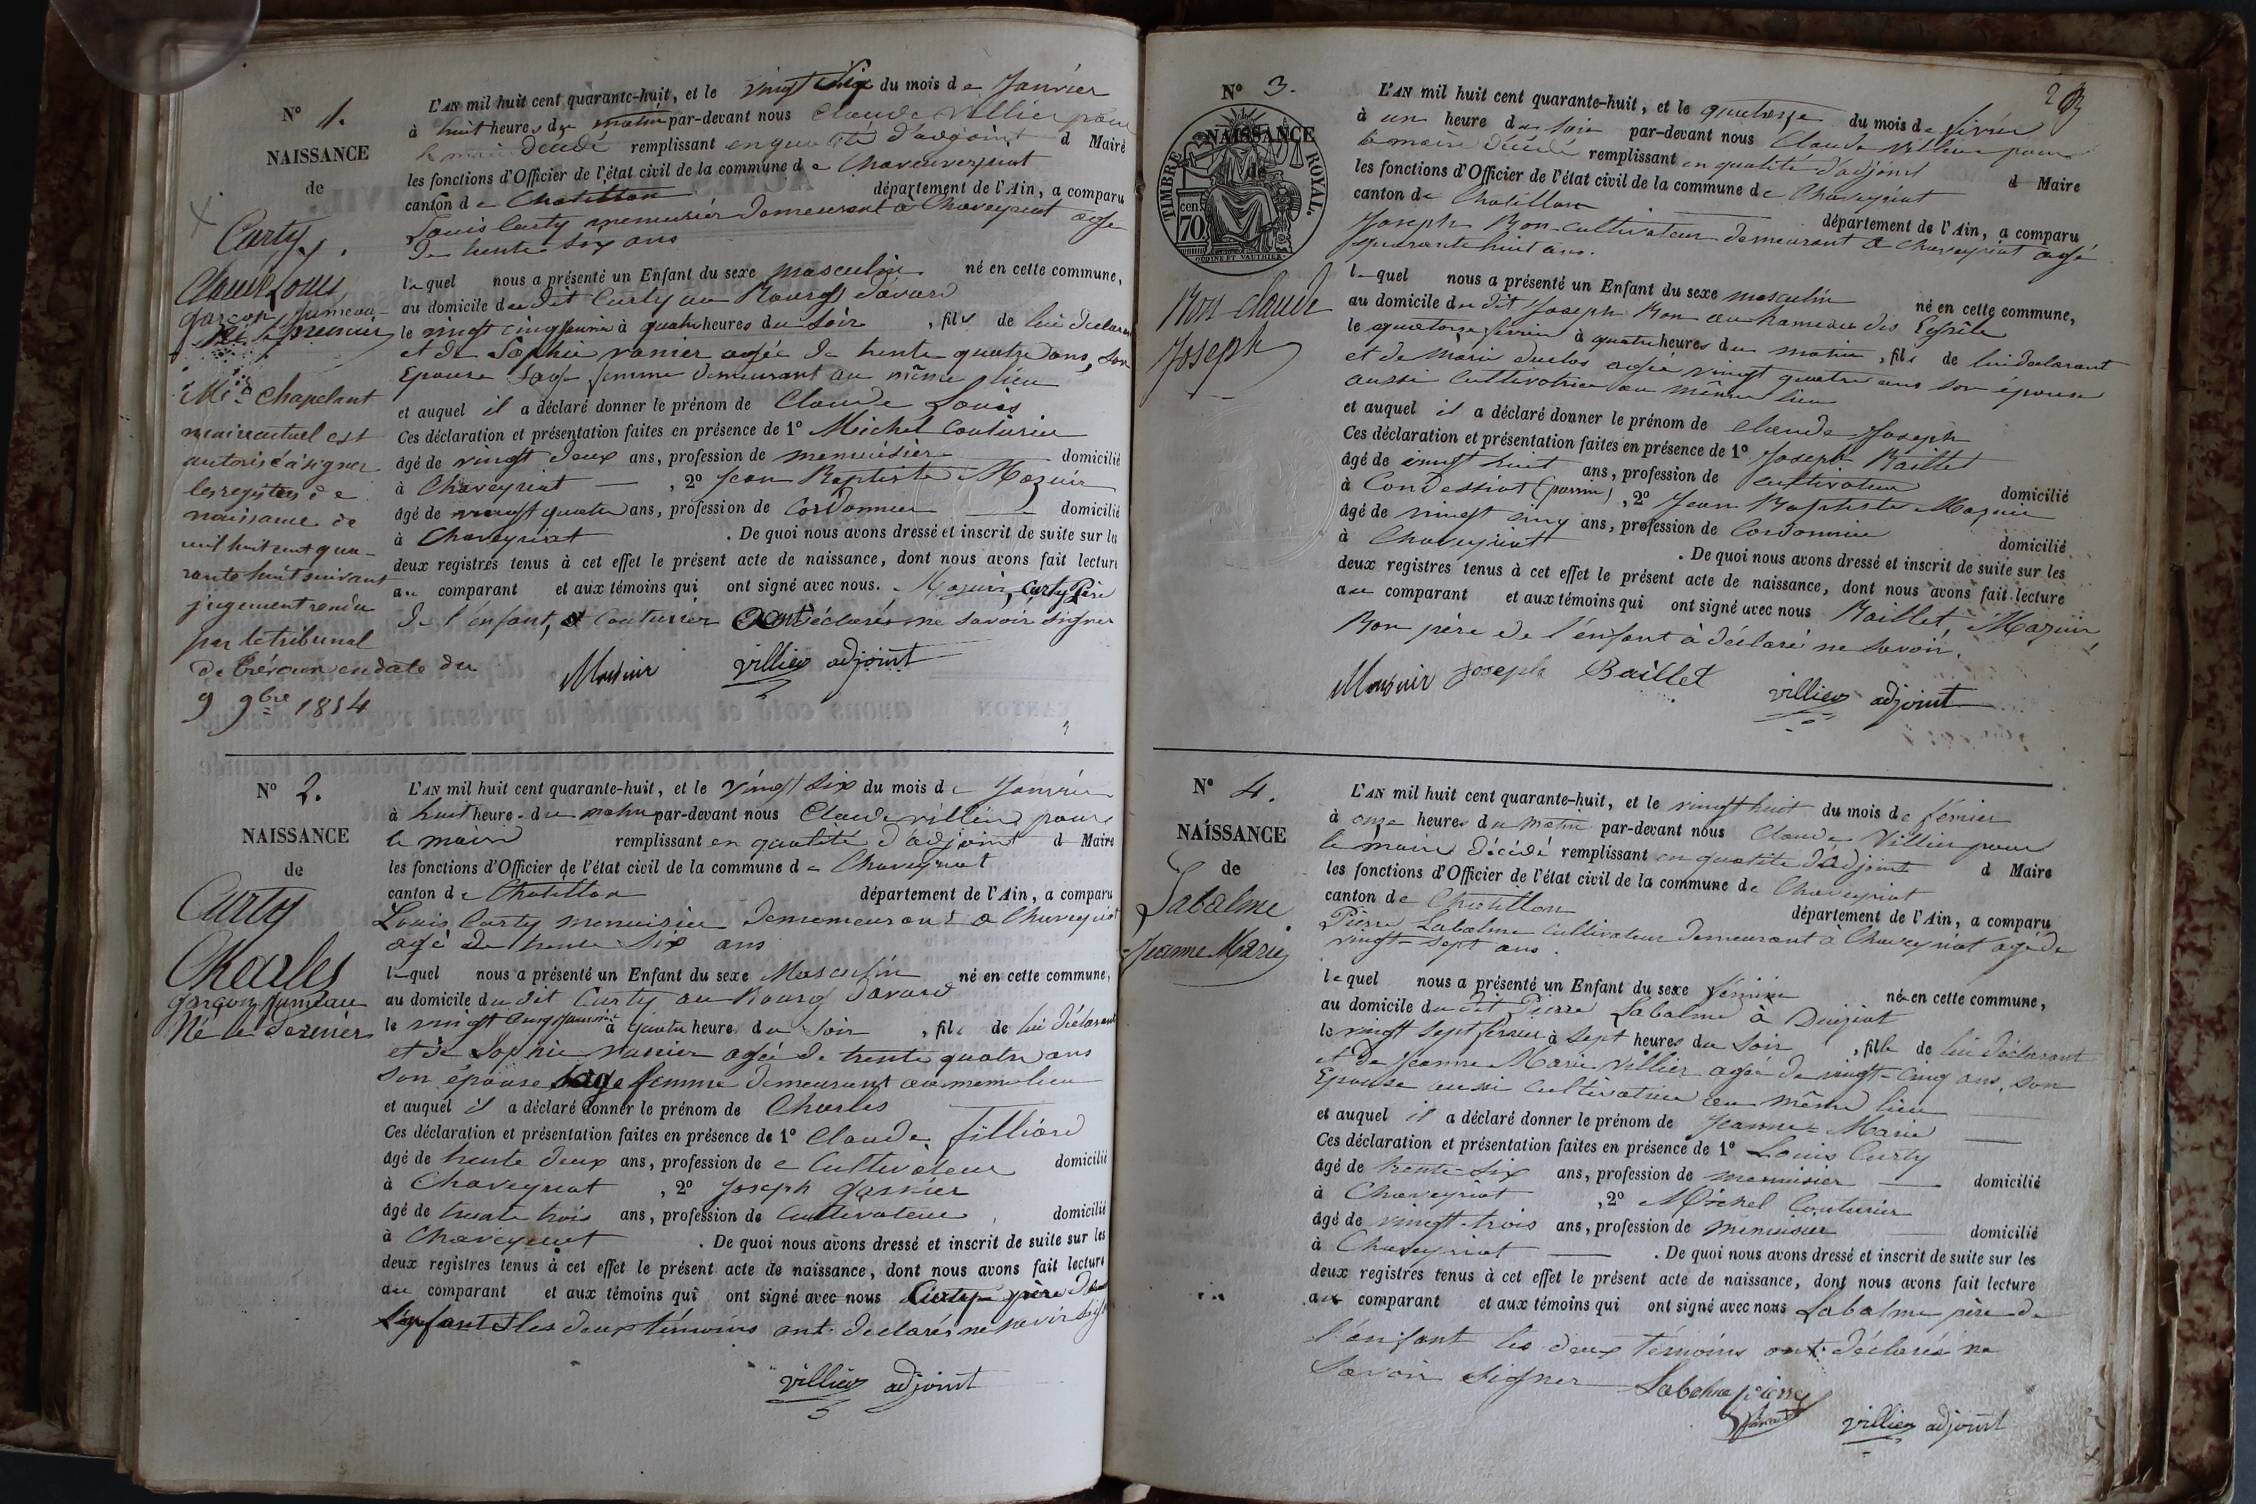 N° 1.
NAISSANCE
de
Curty
Claude Louis
garçon jumeau
Né le premier
Mr Chapelant
maire actuel est
autorisé à signer
les registres de
naissance de
mil huit cent qua-
rante huit suivant
jugement rendu
par le tribunal
de Trévoux en date du
9 9bre 1854
L'AN mil huit cent quarante-huit, et le vingt six du mois de Janvier
à huit heures du matin par-devant nous Claude Villier pour
le maire décédé remplissant en qualité d'adjoint d Maire
les fonctions d'Officier de l'état civil de la commune de Chaveyriat
canton de Chatillon département de l'Ain, a comparu
Louis Curty menuisier demeurant à Chaveyriat age
de trente six ans
lequel nous a présenté un Enfant du sexe masculin né en cette commune,
au domicile dudit Curty au Bourg davard
le vingt cinq janvier à quatre heures du soir, fils de lui déclarant
et de Sophie vanier agée de trente quatre ans, son
Epouse sage femme demeurant au même lieu
et auquel il a déclaré donner le prénom de Claude Louis
Ces déclaration et présentation faites en présence de 1° Michel Couturier
âgé de vingt deux ans, profession de menuisier domicilié
à Chaveyriat, 2° Jean Baptiste Mazuir
âgé de vingt quatre ans, profession de Cordonnier domicilié
à Chaveyriat. De quoi nous avons dressé et inscrit de suite sur les
deux registres tenus à cet effet le présent acte de naissance, dont nous avons fait lecture
au comparant et aux témoins qui ont signé avec nous. Mazuir, Curty Père
de l'enfant, et Couturier ont déclarés ne savoir signer
Mazuir villier adjoint
N° 2.
NAISSANCE
de
Curty
Charles
garçon jumeau
Né le dernier
L'AN mil huit cent quarante-huit, et le vingt six du mois de Janvier
à huit heure du matin par-devant nous Claude villier pour
le maire remplissant en qualité d'adjoint d Maire
les fonctions d'Officier de l'état civil de la commune de Chaveyriat
canton de Chatillon département de l'Ain, a comparu
Louis Curty menuisier demeurant a Chaveyriat
agé de trente six ans
lequel nous a présenté un Enfant du sexe Masculin né en cette commune,
au domicile dudit Curty au Bourg davard
le vingt cinq janvier à quatre heure du soir, fils de lui déclarant
et de Sophie vanier agée de trente quatre ans
son épouse sage femme demeurant au meme lieu
et auquel il a déclaré donner le prénom de Charles
Ces déclaration et présentation faites en présence de 1° Claude filliard
âgé de trente deux ans, profession de Cultivateur domicilié
à Chaveyriat, 2° Joseph garnier
âgé de trente trois ans, profession de Cultivateur domicilié
à Chaveyriat. De quoi nous avons dressé et inscrit de suite sur les
deux registres tenus à cet effet le présent acte de naissance, dont nous avons fait lecture
au comparant et aux témoins qui ont signé avec nous Curty père de
l'enfant et les deux témoins ont déclarés ne savoir signer
villier adjoint
2
N° 3.
TIMBRE ROYAL.
70 cen
NAISSANCE
de
Bon Claude
Joseph
L'AN mil huit cent quarante-huit, et le quatorze du mois de février
à un heure du soir par-devant nous Claude Villier pour
le maire décédé remplissant en qualité d'adjoint d Maire
les fonctions d'Officier de l'état civil de la commune de Chaveyriat
canton de Chatillon département de l'Ain, a comparu
Joseph Bon cultivateur demeurant à Chaveyriat agé
quarante huit ans.
lequel nous a présenté un Enfant du sexe masculin né en cette commune,
au domicile dudit Joseph Bon au hameau des
le quatorze février à quatre heures du matin, fils de lui déclarant
et de Marie duclos agée vingt quatre ans son épouse
aussi cultivatrice au même lieu
et auquel il a déclaré donner le prénom de Claude Joseph
Ces déclaration et présentation faites en présence de 1° Joseph Baillet
âgé de vingt huit ans, profession de cultivateur domicilié
à Condessiat (parrin), 2° Jean Baptiste Mazuir
âgé de vingt cinq ans, profession de Cordonnier domicilié
à Chaveyriat. De quoi nous avons dressé et inscrit de suite sur les
deux registres tenus à cet effet le présent acte de naissance, dont nous avons fait lecture
au comparant et aux témoins qui ont signé avec nous Baillet Mazuir,
Bon père de l'enfant à déclaré ne savoir.
Mazuir Joseph Baillet villier adjoint
N° 4.
NAISSANCE
de
Labalme
Jeanne Marie
L'AN mil huit cent quarante-huit, et le vingt huit du mois de février
à onze heures du matin par-devant nous Claude Villier pour
le maire décédé remplissant en qualité d'adjoint d Maire
les fonctions d'Officier de l'état civil de la commune de Chaveyriat
canton de Chatillon département de l'Ain, a comparu
Pierre Labalme cultivateur demeurant à Chaveyriat agé de
vingt-sept ans.
lequel nous a présenté un Enfant du sexe féminin née en cette commune,
au domicile dudit Pierre Labalme à
le vingt sept février à sept heures du soir, fille de lui déclarant
et de Jeanne Marie Villier agée de vingt-cinq ans, son
Epouse aussi cultivatrice au même lieu
et auquel il a déclaré donner le prénom de Jeanne-Marie
Ces déclaration et présentation faites en présence de 1° Louis Curty
âgé de trente-six ans, profession de menuisier domicilié
à Chaveyriat, 2° Michel Couturier
âgé de vingt-trois ans, profession de menuisier domicilié
à Chaveyriat. De quoi nous avons dressé et inscrit de suite sur les
deux registres tenus à cet effet le présent acte de naissance, dont nous avons fait lecture
au comparant et aux témoins qui ont signé avec nous Labalme père de
l'enfant les deux témoins ont déclarés ne
Savoir Signer Labalme pierre
villier adjoint